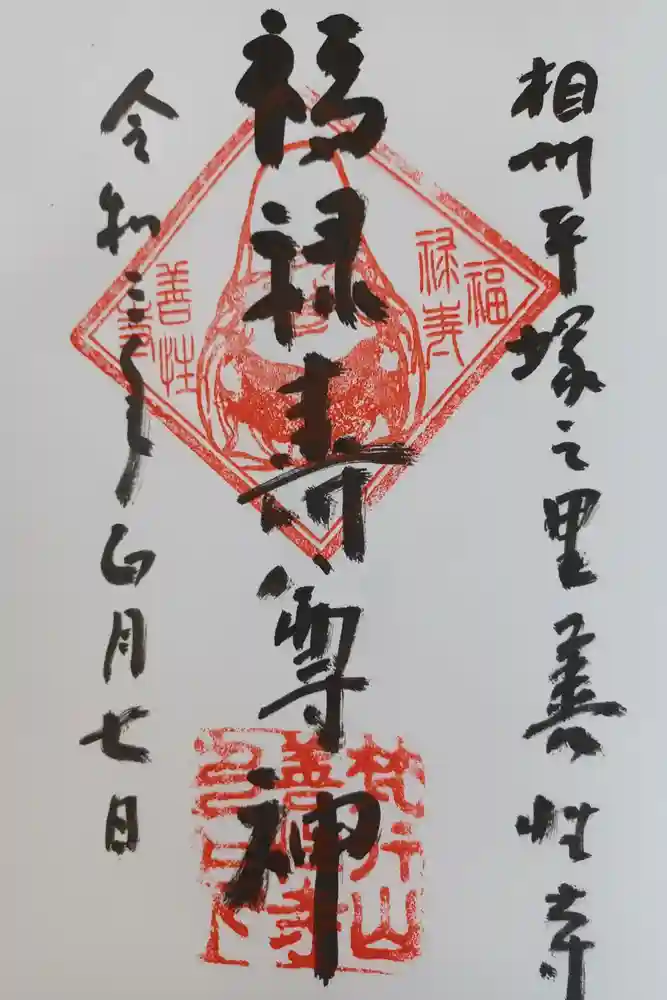 相州平塚之里善性寺
福禄寿尊神
令和三年正月七日
福
禄寿
善性
梵行山
善性寺